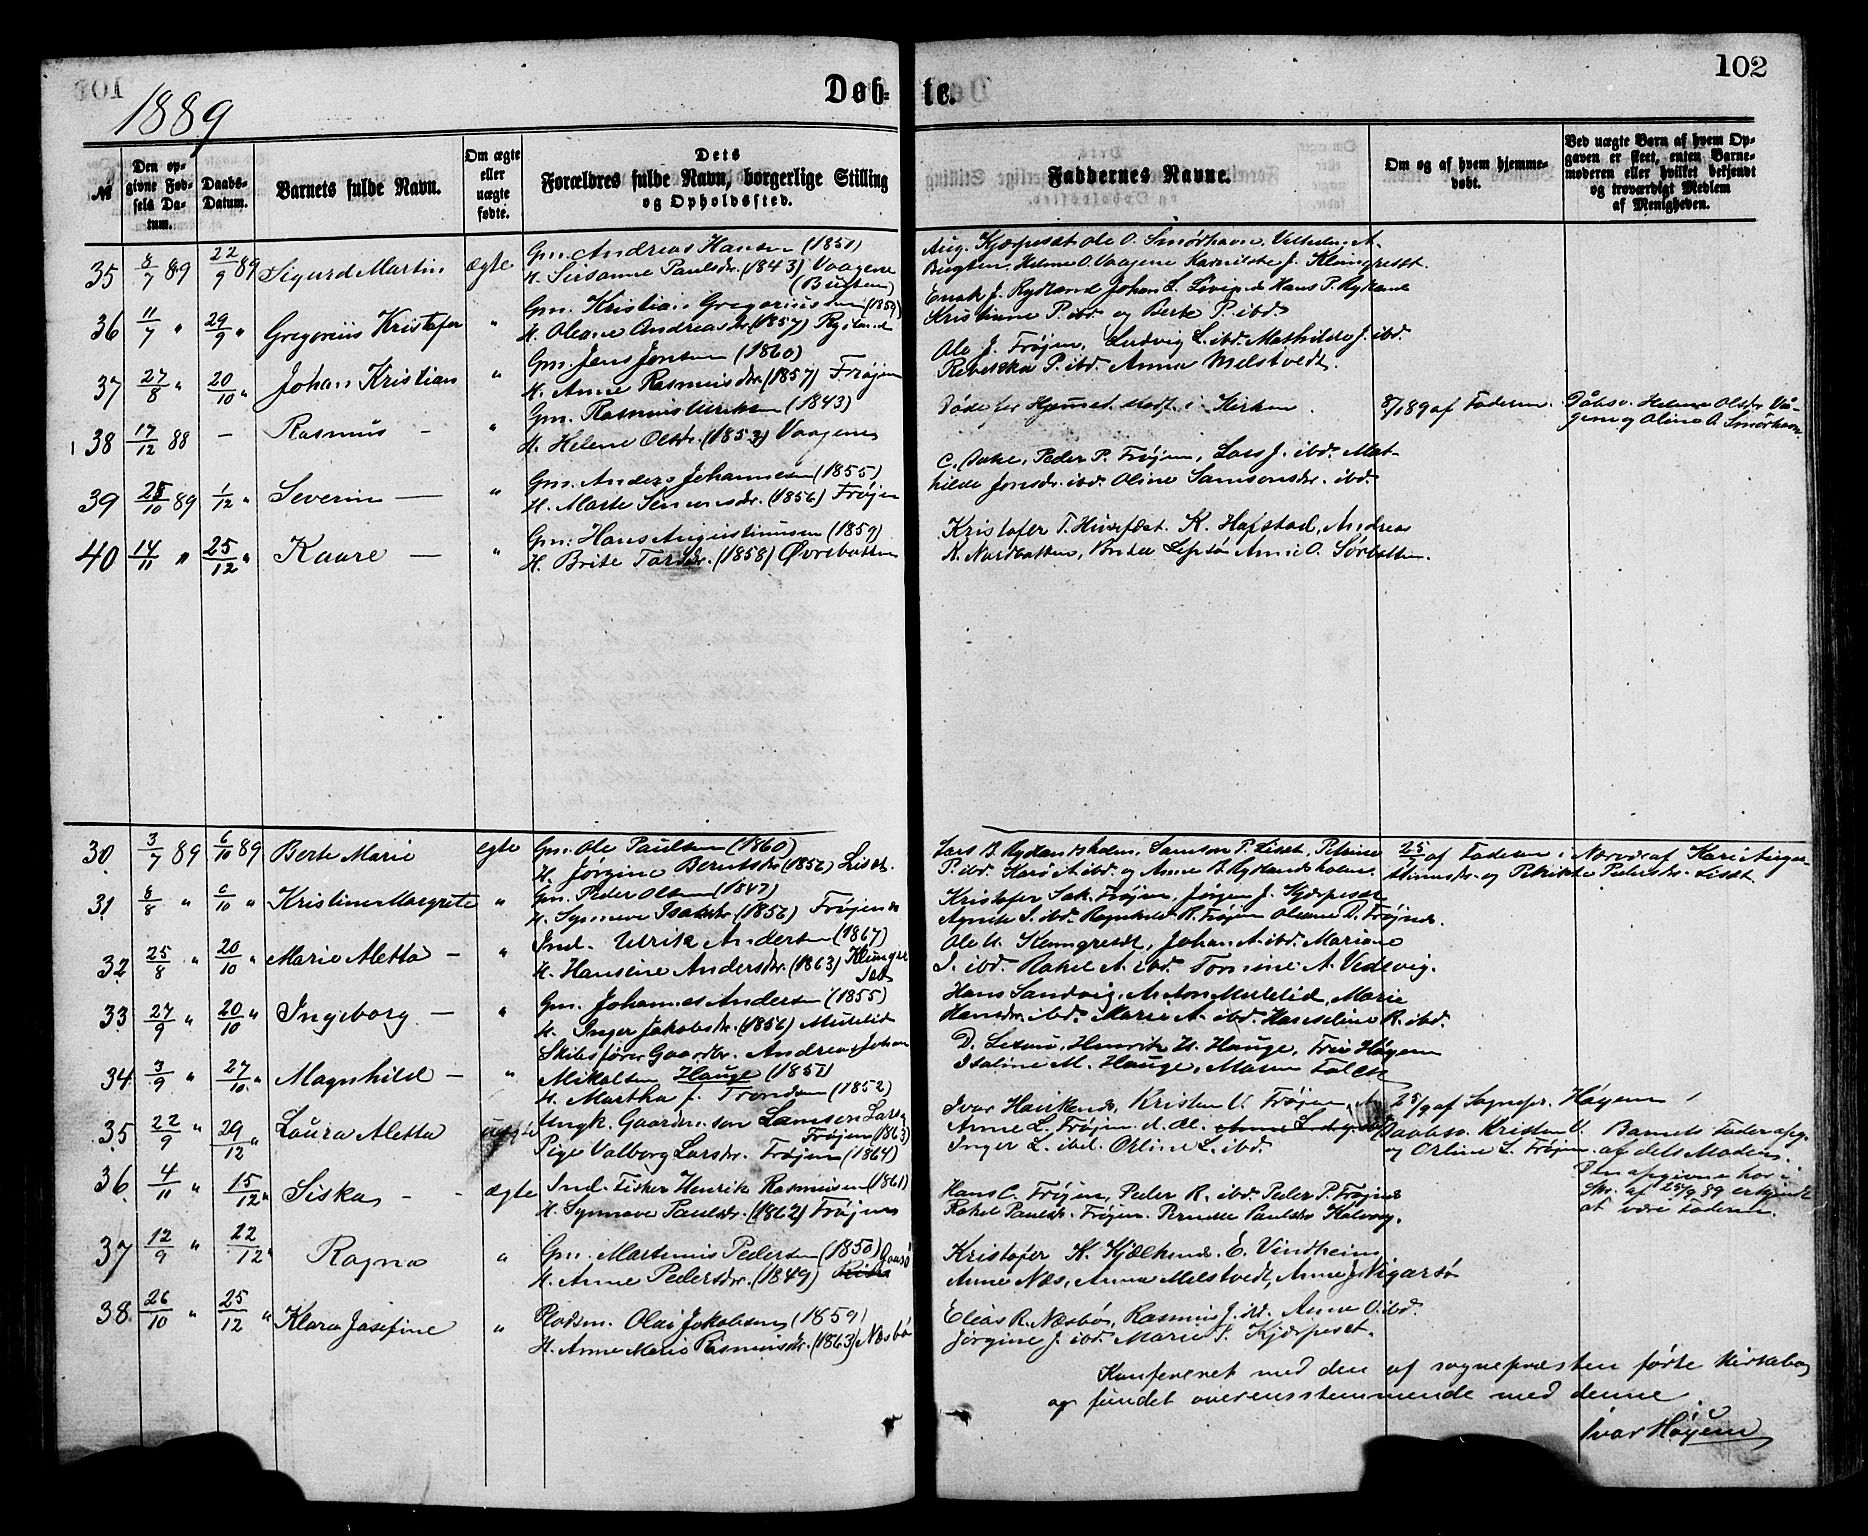 102
1889
Døb- te.
№
Den op-
givne Fød-
sels Da-
tum.
Daabs-
Datum.
Barnets fulde Navn.
Om ægte
eller
uægte
fødte.
Dets
Forældres fulde Navn, borgerlige Stilling
og Opholdssted.
Faddernes Navne.
Om og af hvem hjemme-
døbt.
Ved uægte Børn af hvem Op-
gaven er skeet, enten Barne-
moderen eller hvilket bekjendt
og troværdigt Medlem
af Menigheden.
35 8/7 89 22/9 89 Sigurd Martin ægte Gm. Andreas Hansen (1851)
H. Sersanne Paulsdr. (1843) Vaagene
(Bugten)
Aug. Kjærpeset Ole O. Smørhavn
Bugten, Helene O. Vaagene J. Klungreset.
36 11/7 " 29/9 " Gregorius Kristofer " Gm. Kristian Gregoriussen (1859)
H. Oleane Andreasdr. (1857) Rysland
Enok J. Rydland Johan L. Hans P. Rydland
Kristine P. ibd. og Berte P. ibd.
37 27/8 " 20/10 " Johan Kristian " Gm. Jens Jensen (1860)
H. Anne Rasmusdr. (1857) Frøjen
Ole J. Frøjen, Ludvig L. ibd. Mathilde J. ibd.
Rebekka P. ibd. Anna Melstvedt.
38 17/12 88 - Rasmus - " Gm. Rasmus Ulriksen (1843)
H. Helene Olsdr. (1853) Vaagene
Døde før Hjemmed. stadf. i Kirken.
8/1 89 af Faderen.
Dåbsv. Helene Olsdr. Vå-
gene og Oline A. Smørhavn
39 28/10 89 1/12 " Severin - " Gm. Anders Johannesen (1855)
H. Marte Simonsdr. (1856) Frøjen
C. Peder P. Frøjen, Lars J. ibd. Mat-
hilde Jonsdr. ibd. Oline Samsonsdr. ibd.
40 14/11 " 25/12 " Kaare - " Gm. Hans Augustinussen (1859)
H. Brite (1858) Øvrebotten
Kristofer T. Husefest. K. Hafstad, Andreas
K. Nordbotten, Anne O. Sørbotten.
30 3/7 89 6/10 89 Berte Marie egte Gm. Ole Paulsen (1860)
H. Jørgine Berntsdr. (1856) Liset.
Lars B. Rydlandsholm, Samson P. Liset, Petrine
P. ibd. Hans A. ibd. og Anne B. Rydlandsholm.
25/7 af Faderen i Nærvær af Kari Augu-
stinusdr. og Petrikke Pedersdr. Liset
31 8/8 " 6/10 " Kristine Margrete " Gm. Peder Olsen (1847)
H. Synneve Isaksdr. (1856) Frøjen
Kristofer Sak. Frøjen, Jørgen J. Kjærpeset
Agnete I. ibd. Ragnhild R. Frøjen Oleane D. Frøjnes.
32 25/8 " 20/10 " Marie Aletta - " Ind. Ulrik Andersen (1867)
H. Hansine Andersdr. (1863) Klungre
set
Ole U. Klungreset, Johan A. ibd. Mariane
I. ibd. Rakel A. ibd. Tomine A. Vedvig.
33 27/9 " 20/10 " Ingeborg - " Gm. Johannes Andersen (1855)
H. Inger Jakobsdr. (1856) Multelid
Hans Sandvig, Anton Multelid, Marie
Hansdr. ibd. Marie A. ibd. Hanseline R. ibd.
34 3/9 " 27/10 " Magnhild - " Skibsfører Gaardbr. Andreas Johan
Mikalsen Hauge (1851)
H. Martha f. Trondsen (1852)
D. Henrik U. Hauge, Fru Høyem
Isaline M. Hauge, Maren Falck
35 22/9 " 29/12 " Laura Aletta uægte Ungk. Gaardm. søn Samson Lars
Frøjen (1863)
Pige Valborg Larsdr. Frøjen (1864)
Ivar Haukenes, Kristen V. Frøjen,
Anne L. Frøjen
Inger L. ibd. Orline L. ibd.
25/9 af Sognepr. Høyem
Daabsv. Kristen V.
og Orline L. Frøjen.
Barnets Fader opg.
af dets Moder.
Den opgivne har i
Skr. af 25/9 89 erkjendt
at være Faderen.
36 4/11 " 15/12 " Siska - - ægte Ind. Fisker Henrik Rasmussen (1861)
H. Synnove Paulsdr. (1862) Frøjnes
Hans C. Frøjen, Peder R. ibd. Peder P. Frøjnes
Rakel Paulsdr. Frøjen. Pernelle Paulsdr. Kalvåg.
37 12/9 " 22/12 " Ragna " Gm. Martinus Pedersen (1850) Gaasø
H. Anne Pedersdr. (1849)
Kristofer K. Kjælknes. E. Vindheim
Anne Næs, Anna Melstvedt, Anne J. Nigarsø
38 26/10 " 25/12 " Klara Josefine " Pladsm. Olai Jakobsen (1859)
H. Anne Marie Rasmusdr. (1863) Næsbø
Elias R. Næsbø, Rasmus J. ibd. Anne O. ibd.
Jørgine J. ibd. Marie P. Kjærpeset.
Konfereret med den af sognepræsten førte Kirkebog
og fundet overensstemmende med denne
Ivar Høyem